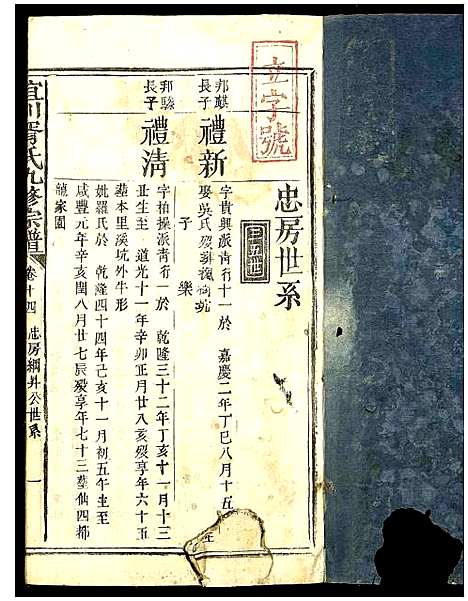 立字號
忠房世系
三五世
邦麒長子
禮新
字貴興派青行十一於 嘉慶二年丁巳八月十五
生
娶吳氏歿葬
子 樂
邦驎長子
禮清
字拍操派青行一於 乾隆三十二年丁亥十一月十三
丑生至 道光十一年辛卯正月廿八亥歿享年六十五
塟本里溪坑外牛形
妣羅氏於 乾隆四十四年己亥十一月初五午生至
咸豐元年辛亥閏八月廿七辰歿享年七十三塟仙四都
龍家園
宜川胥氏九修宗譜
卷十四
忠房綱井公世系
一